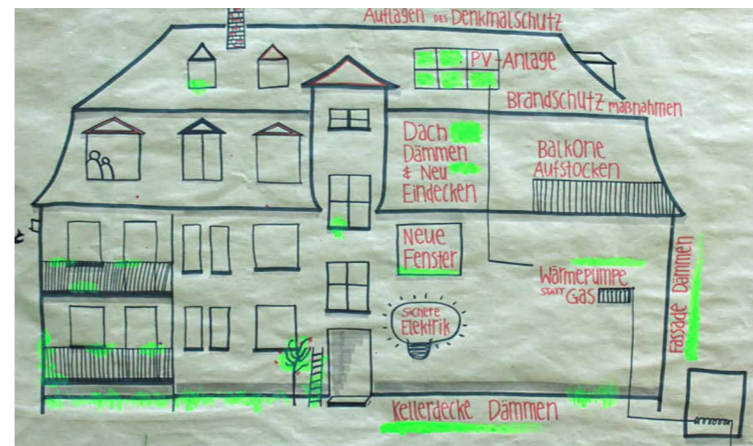 Auflagen des Denkmalschutz
PV-Anlage
Brandschutz maßnahmen
Dach
Dämmen
& Neu
Eindecken
Balkone
Aufstocken
Neue
Fenster
Wärmepumpe
statt Gas
Sichere
Elektrik
Fassade Dämmen
Kellerdecke Dämmen